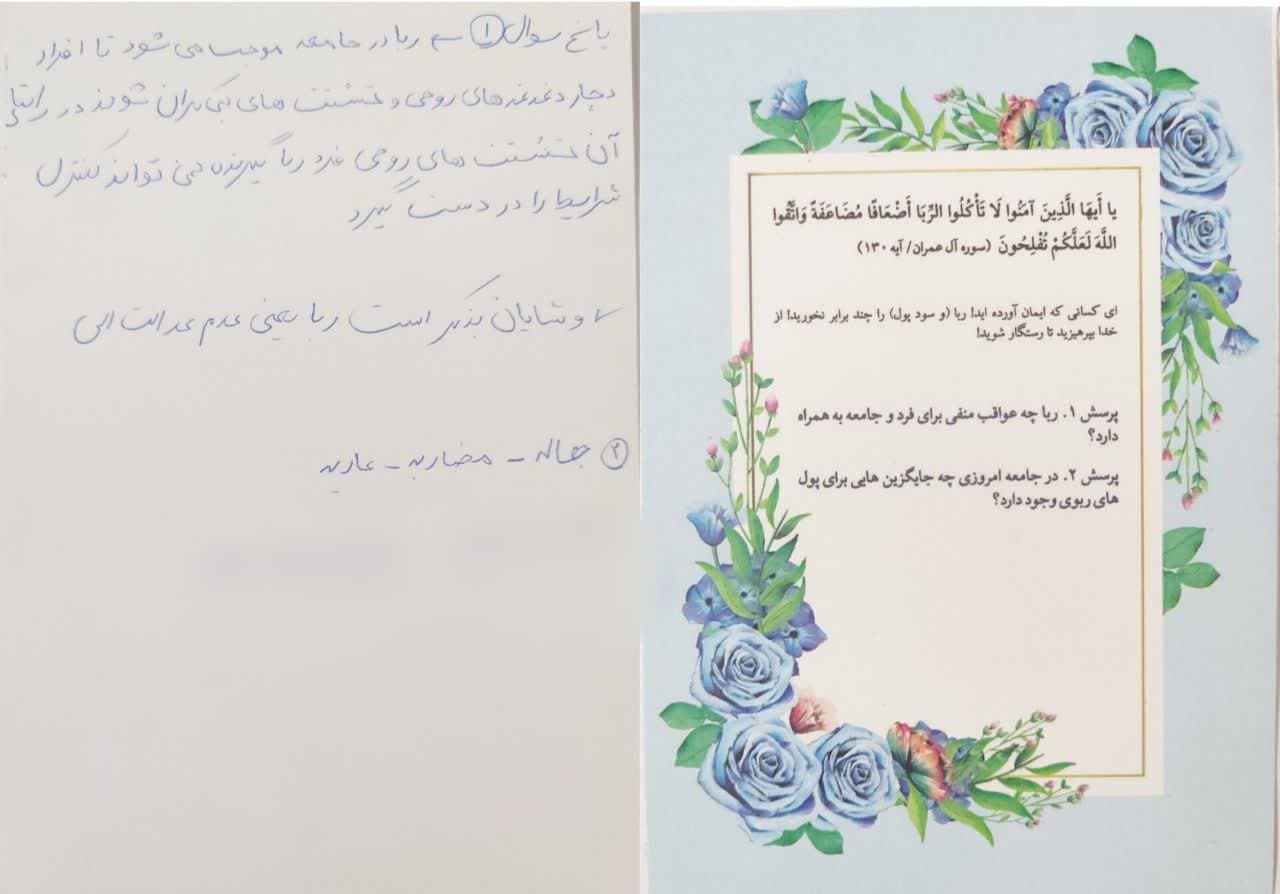 یا أَیهَا الَّذِینَ آمَنُوا لَا تَأْكُلُوا الرِّبَا أَضْعَافًا مُضَاعَفَةً وَاتَّقُوا
اللَّهَ لَعَلَّكُمْ تُفْلِحُونَ (سوره آل عمران/ آیه ۱۳۰)
ای کسانی که ایمان آورده اید! ربا (و سود پول) را چند برابر نخورید! از
خدا بپرهیزید تا رستگار شوید!
پرسش ۱. ربا چه عواقب منفی برای فرد و جامعه به همراه
دارد؟
پرسش ۲. در جامعه امروزی چه جایگزین هایی برای پول
های ربوی وجود دارد؟
پاسخ سوال ۱ ربا در جامعه موجب می شود تا افراد
دچار دغدغه های روحی و خستگی های بیکران شوند در
آن های روحی فرد ربا گیرنده نمی تواند کنترل
شرایط را در دست گیرد
و شایان بذکر است ربا یعنی عدم عدالت
۲ جعاله - مضاربه - عاریه